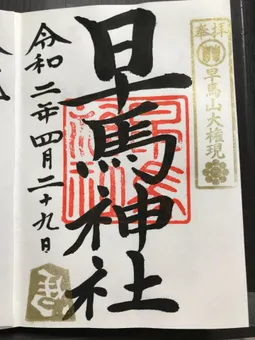 奉拝
早馬山大権現
早馬神社
令和二年四月二十九日
馬